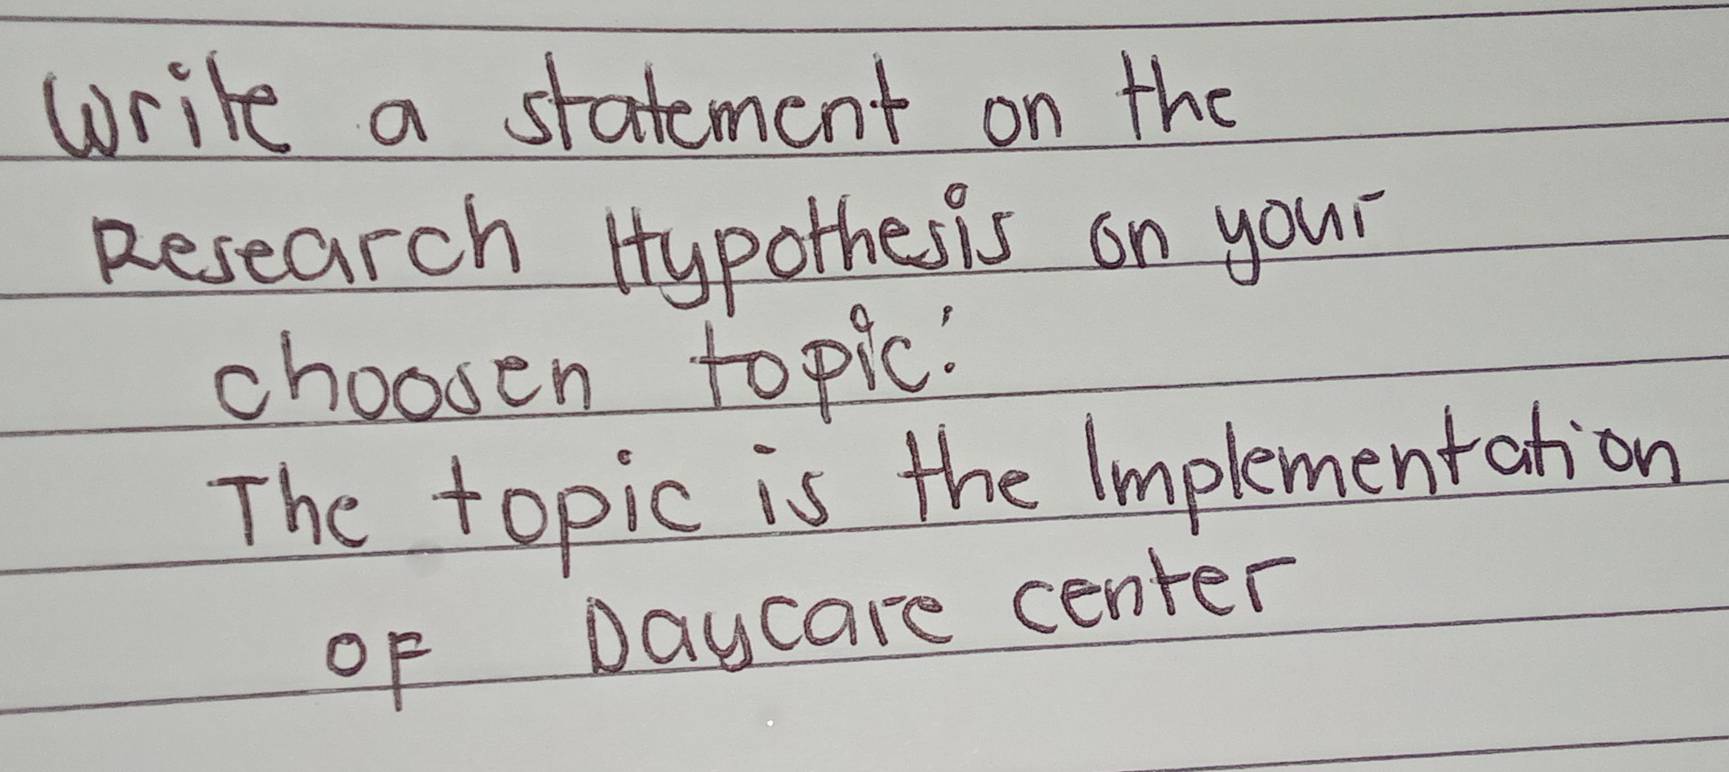 Write a statement on the
Research Hypothesis on your
choosen topic:
The topic is the Implementation
OF Daycare center